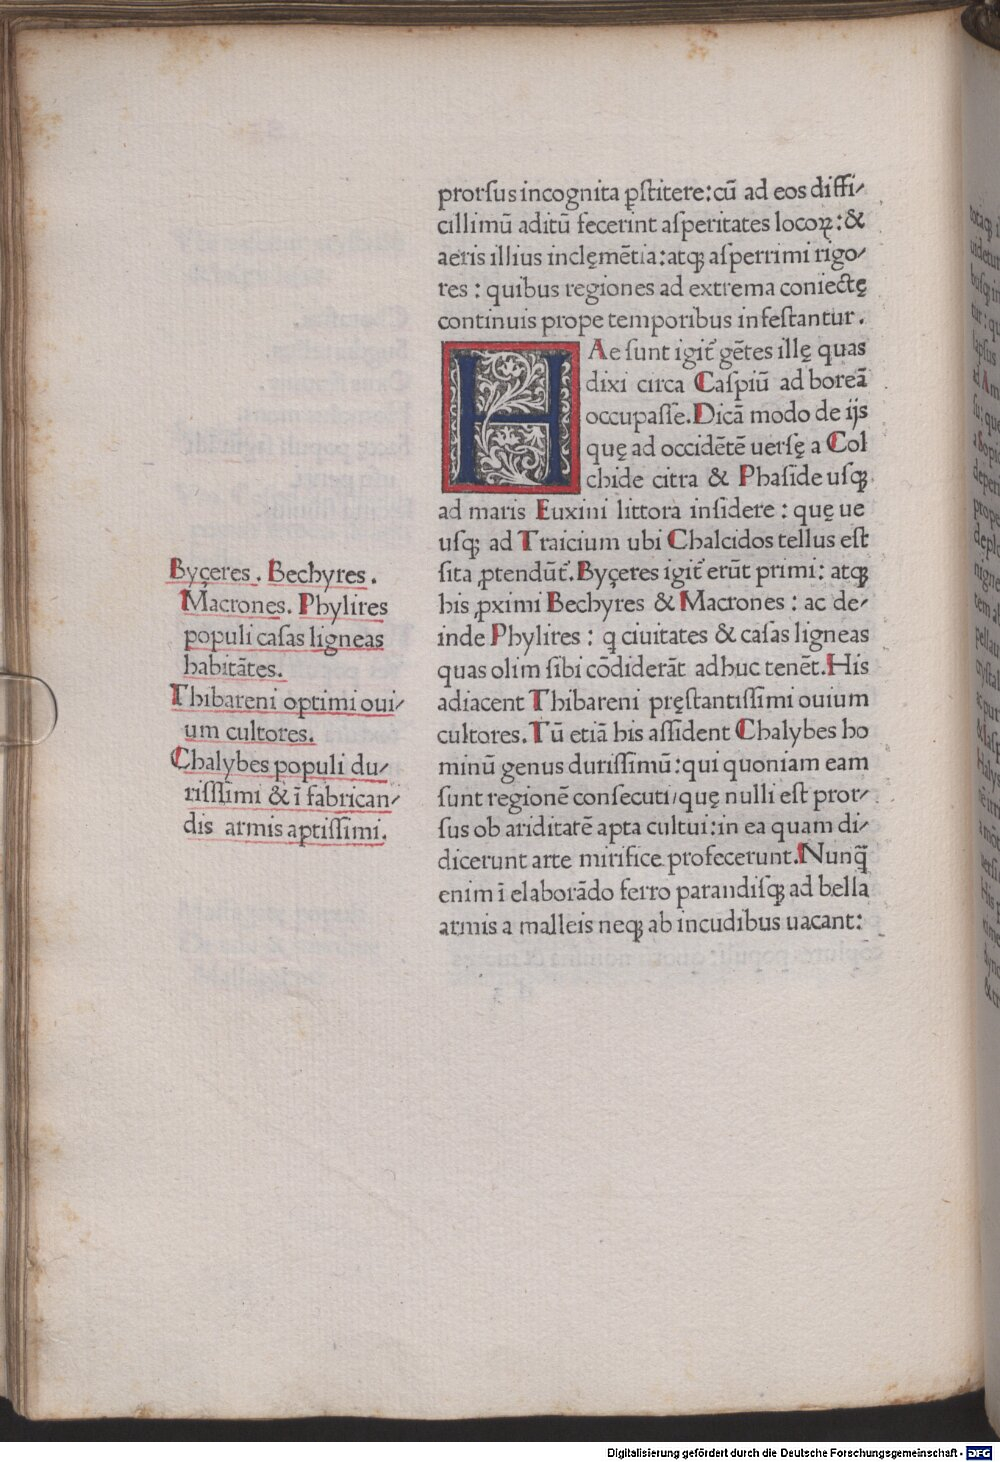 prorſus incognita ꝑſtitere: cū ad eos diffi⸗
cillimū aditū fecerint aſperitates locoꝝ: &
aeris illius inclęmētia: atqꝫ aſperrimi rigo⸗
res : quibus regiones ad extrema coniectę
continuis prope temporibus infeſtantur.
HAe ſunt igit̄ gētes illę quas
dixi circa Caſpiū ad boreā
occupaſſe. Dicā modo de ijs
quę ad occidētē uerſę a Col
chide citra & Phaſide uſqꝫ
ad maris Euxini littora inſidere : quę ue
uſqꝫ ad Traicium ubi Chalcidos tellus eſt
ſita ꝓtendūt̄. Byçeres igit̄ erūt primi: atqꝫ
his ꝓximi Bechyres & Macrones : ac de⸗
inde Phylires : q ciuitates & caſas ligneas
quas olim ſibi cōdiderāt adhuc tenēt. His
adiacent Thibareni pręſtantiſſimi ouium
cultores. Tū etiā his aſſident Chalybes ho
minū genus duriſſimū: qui quoniam eam
ſunt regionē conſecuti/quę nulli eſt pror⸗
ſus ob ariditatē apta cultui: in ea quam di⸗
dicerunt arte mirifice profecerunt. Nunq̄
enim ī elaborādo ferro parandiſqꝫ ad bella
armis a malleis neqꝫ ab incudibus uacant:
Byçeres. Bechyres.
Macrones. Phylires
populi caſas ligneas
habitātes.
Thibareni optimi oui⸗
um cultores.
Chalybes populi du⸗
riſſimi & ī fabrican⸗
dis armis aptiſſimi.
Digitalisierung gefördert durch die Deutsche Forschungsgemeinschaft - DFG